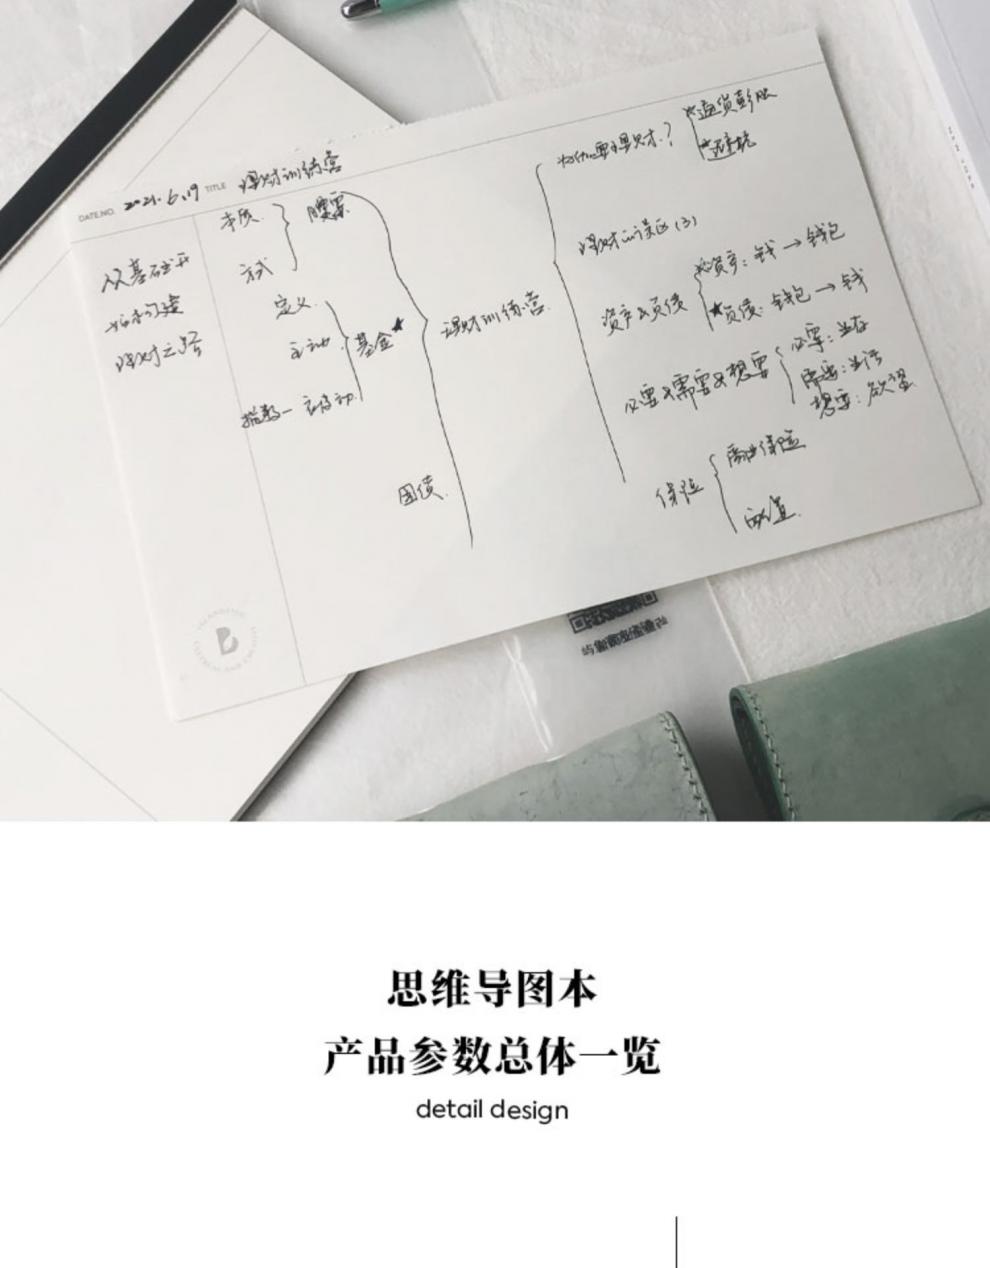 DATE.NO. 2021.6.19 TITLE 理财训练营
从基础开
始构建
理财三号
本质
方式
股票
定义
主动
指数—被动
基金★
国债
理财训练营
为什么要理财?
★通货膨胀
理财的误区(3)
资产&负债
★资产:钱→钱包
★负债:钱包→钱
必要&需要&想要
必要:生存
需要:生活
想要:欲望
保险
商业保险
B
思维导图本
产品参数总体一览
detail design